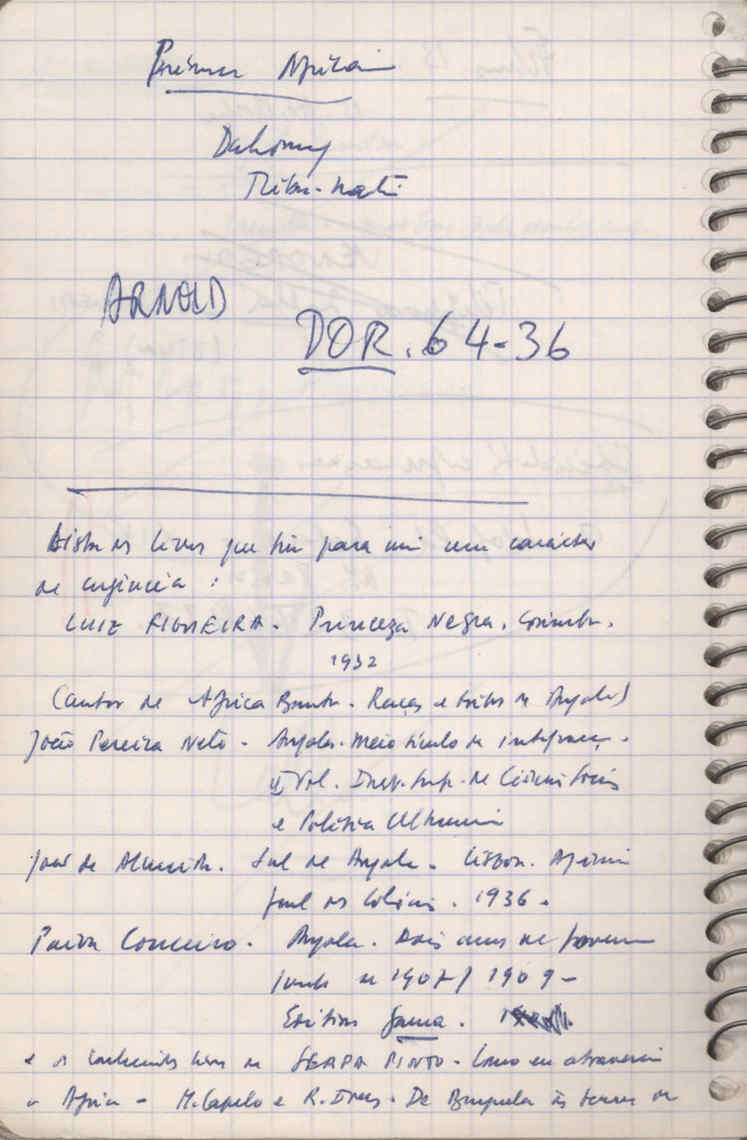 Présence Africaine
Dahomey
ARNOLD
DOR. 64-36
livros que têm para mim um carácter
de urgência :
LUIZ FIGUEIRA. Princeza Negra. Coimbra.
1932
(autor de Africa Bantu. Raças e tribos de Angola)
João Pereira Neto - Angola. Meio século de integração.
Vol. Inst. Sup. de Ciências Sociais
e Política Ultramarina
João de Almeida. Sul de Angola. Lisboa. Agência
Geral das Colónias. 1936.
Paiva Couceiro. Angola. Dois anos de governo
Junho de 1907 / 1909 -
Edições Gama.
e os conhecidos livros de SERPA PINTO - Como eu atravessei
a Africa - H. Capelo e R. Ivens. De Benguela às terras de